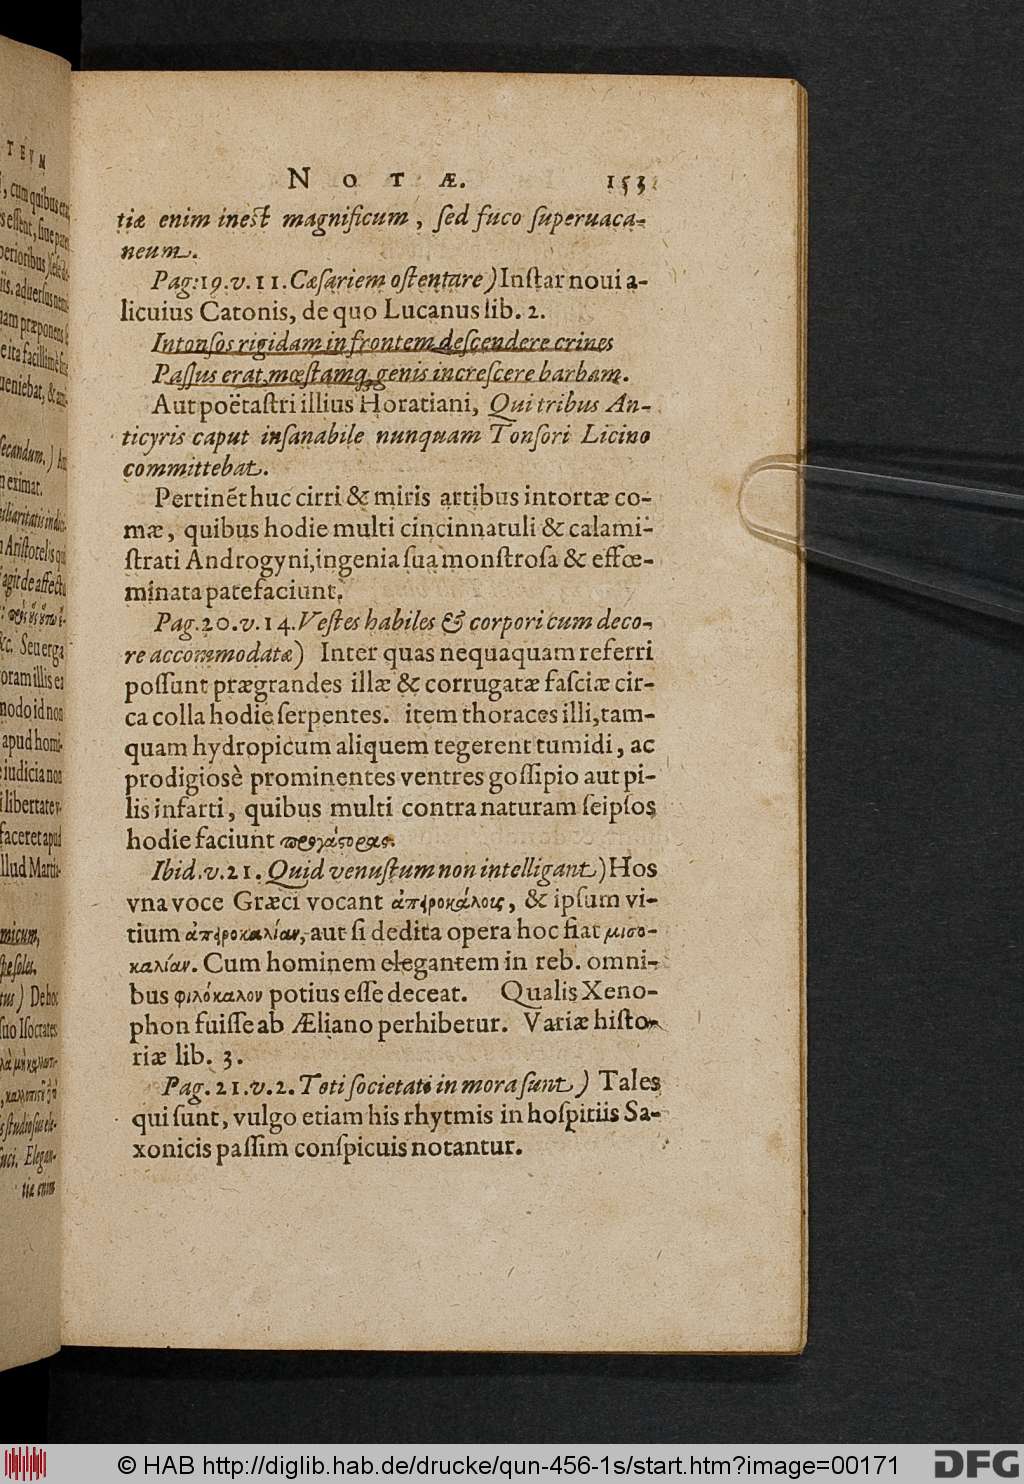 TEVM
NOTÆ. 153
tiæ enim inest magnificum, sed fuco superuaca-
neum.
Pag. 19. v. 11. Cæsariem ostentare) Instar noui a-
licuius Catonis, de quo Lucanus lib. 2.
Intonsos rigidam in frontem descendere crines
Passus erat, mœstamq; genis increscere barbam.
Aut poëtastri illius Horatiani, Qui tribus An-
ticyris caput insanabile nunquam Tonsori Licino
committebat.
Pertinẽt huc cirri & miris artibus intortæ co-
mæ, quibus hodie multi cincinnatuli & calami-
strati Androgyni, ingenia sua monstrosa & effœ-
minata patefaciunt.
Pag. 20. v. 14. Vestes habiles & corpori cum deco-
re accommodatæ) Inter quas nequaquam referri
possunt prægrandes illæ & corrugatæ fasciæ cir-
ca colla hodie serpentes. item thoraces illi, tam-
quam hydropicum aliquem tegerent tumidi, ac
prodigiosè prominentes ventres gossipio aut pi-
lis infarti, quibus multi contra naturam seipsos
hodie faciunt προγάςορας.
Ibid. v. 21. Quid venustum non intelligant) Hos
vna voce Græci vocant ἀπειροκάλοις, & ipsum vi-
tium ἀπειροκαλίαν, aut si dedita opera hoc fiat μισο-
καλίαν. Cum hominem elegantem in reb. omni-
bus φιλόκαλον potius esse deceat. Qualis Xeno-
phon fuisse ab Æliano perhibetur. Variæ histo-
riæ lib. 3.
Pag. 21. v. 2. Toti societati in mora sunt) Tales
qui sunt, vulgo etiam his rhytmis in hospitiis Sa-
xonicis passim conspicuis notantur.
© HAB http://diglib.hab.de/drucke/qun-456-1s/start.htm?image=00171
DFG